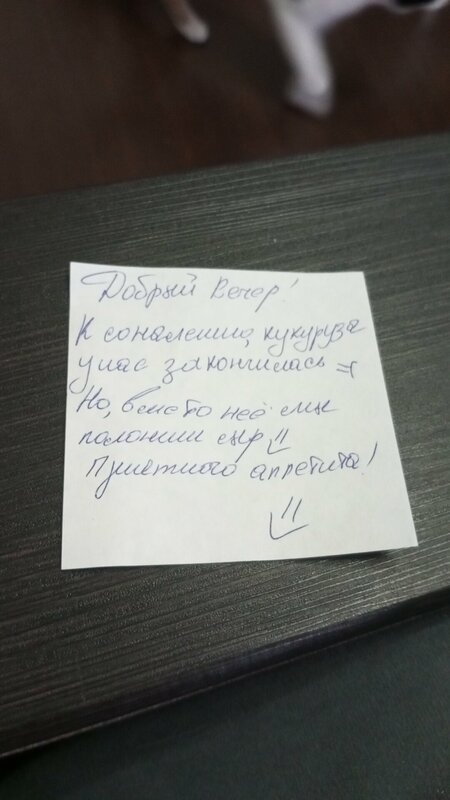 Добрый вечер!
К сожалению, кукуруза
у нас закончилась =(
Но, вместо неё мы
положили сыр
Приятного аппетита!